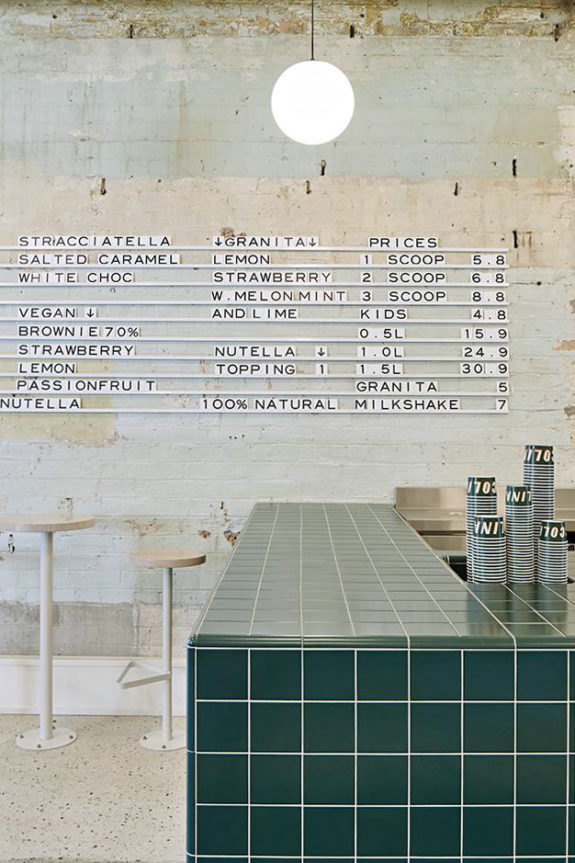 STRACCIATELLA ↓GRANITA↓ PRICES
SALTED CARAMEL LEMON 1 SCOOP 5.8
WHITE CHOC STRAWBERRY 2 SCOOP 6.8
W.MELON MINT 3 SCOOP 8.8
VEGAN ↓ AND LIME KIDS 4.8
BROWNIE 70% 0.5L 15.9
STRAWBERRY NUTELLA ↓ 1.0L 24.9
LEMON TOPPING 1 1.5L 30.9
PASSIONFRUIT GRANITA 5
NUTELLA 100% NATURAL MILKSHAKE 7